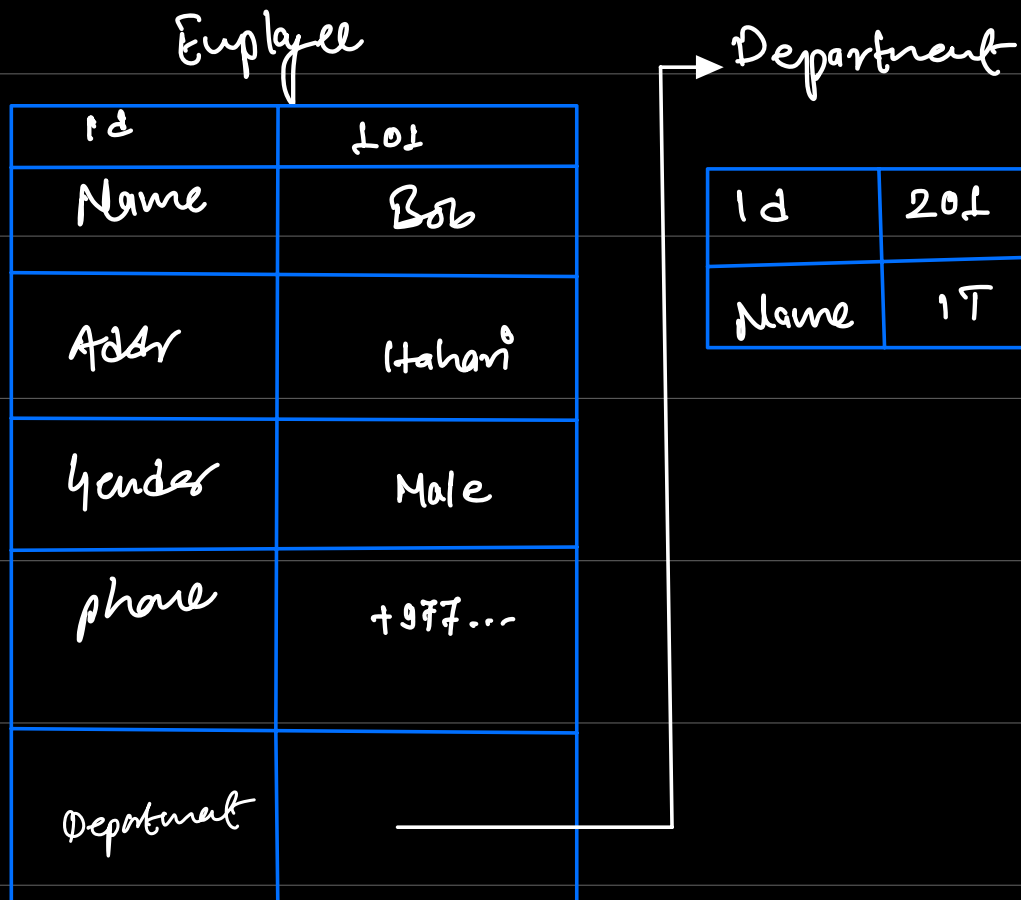 Employee
Id 101
Name Bob
Addr Itahari
Gender Male
phone +977...
Department
Department
Id 201
Name IT